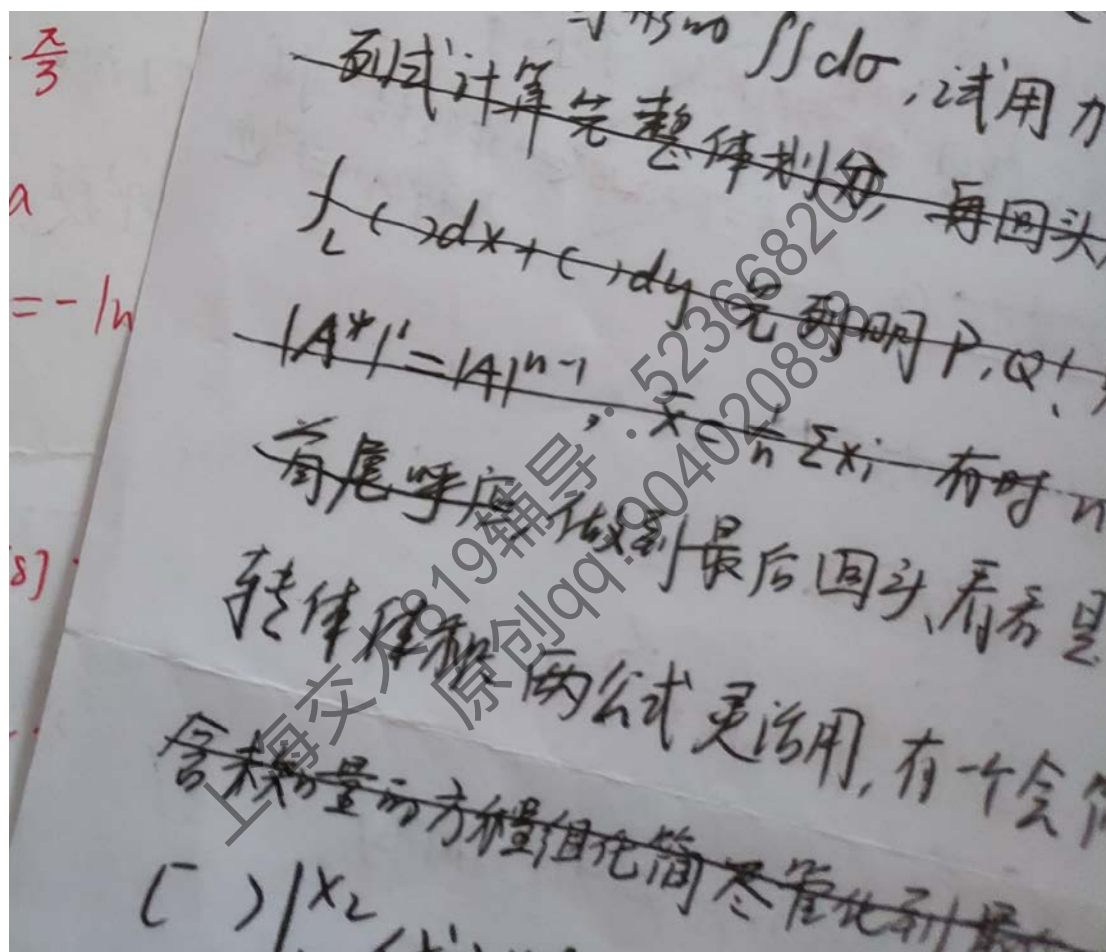 π/3
a
=-ln
8]
∬dσ,试用
列式计算先整体划分,再回头
∫L( )dx+( )dy先列明P,Q!
|A*|=|A|^(n-1), x̄=1/n Σxi 有时n
首尾呼应,做到最后回头看看是
转体体积两公式灵活用,有一个会
含未知量的方程组化简尽管化到最
[ )|x2
上海交大819辅导:523668208
原创qq:904020898